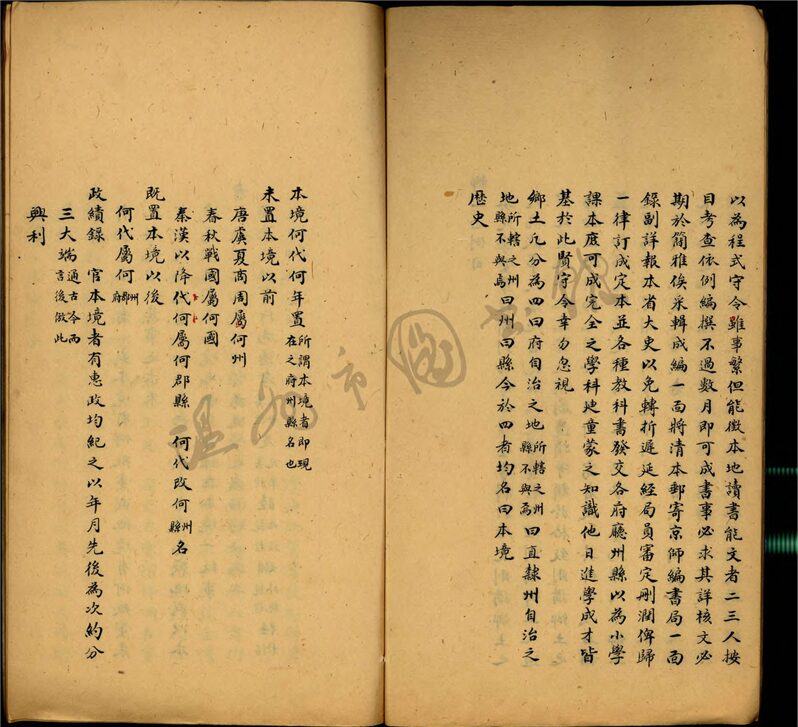 以為程式守令雖事繁但能徵本地讀書能文者二三人按
目考查依例編撰不過數月即可成書事必求其詳核文必
期於簡雅俟采輯成編一面將清本郵寄京師編書局一面
錄副詳報本省大吏以免轉折遲延經局員審定刪潤俾歸
一律訂成定本並各種教科書發交各府廳州縣以為小學
課本庶可成完全之學科迪童蒙之知識他日進學成才皆
基於此賢守令幸勿忽視
鄉土凡分為四曰府自治之地所轄之州縣不與焉曰直隸州自治之
地所轄之州縣不與焉曰州曰縣今於四者均名曰本境
歷史
本境何代何年置所謂本境者即現在之府州縣名也
未置本境以前
唐虞夏商周屬何州
春秋戰國屬何國
秦漢以降代何屬何郡縣 何代改何州縣名
既置本境以後
何代屬何州郡府
政績錄 官本境者有惠政均紀之以年月先後為次約分
三大端通古今而言後倣此
興利
溫州市圖書館